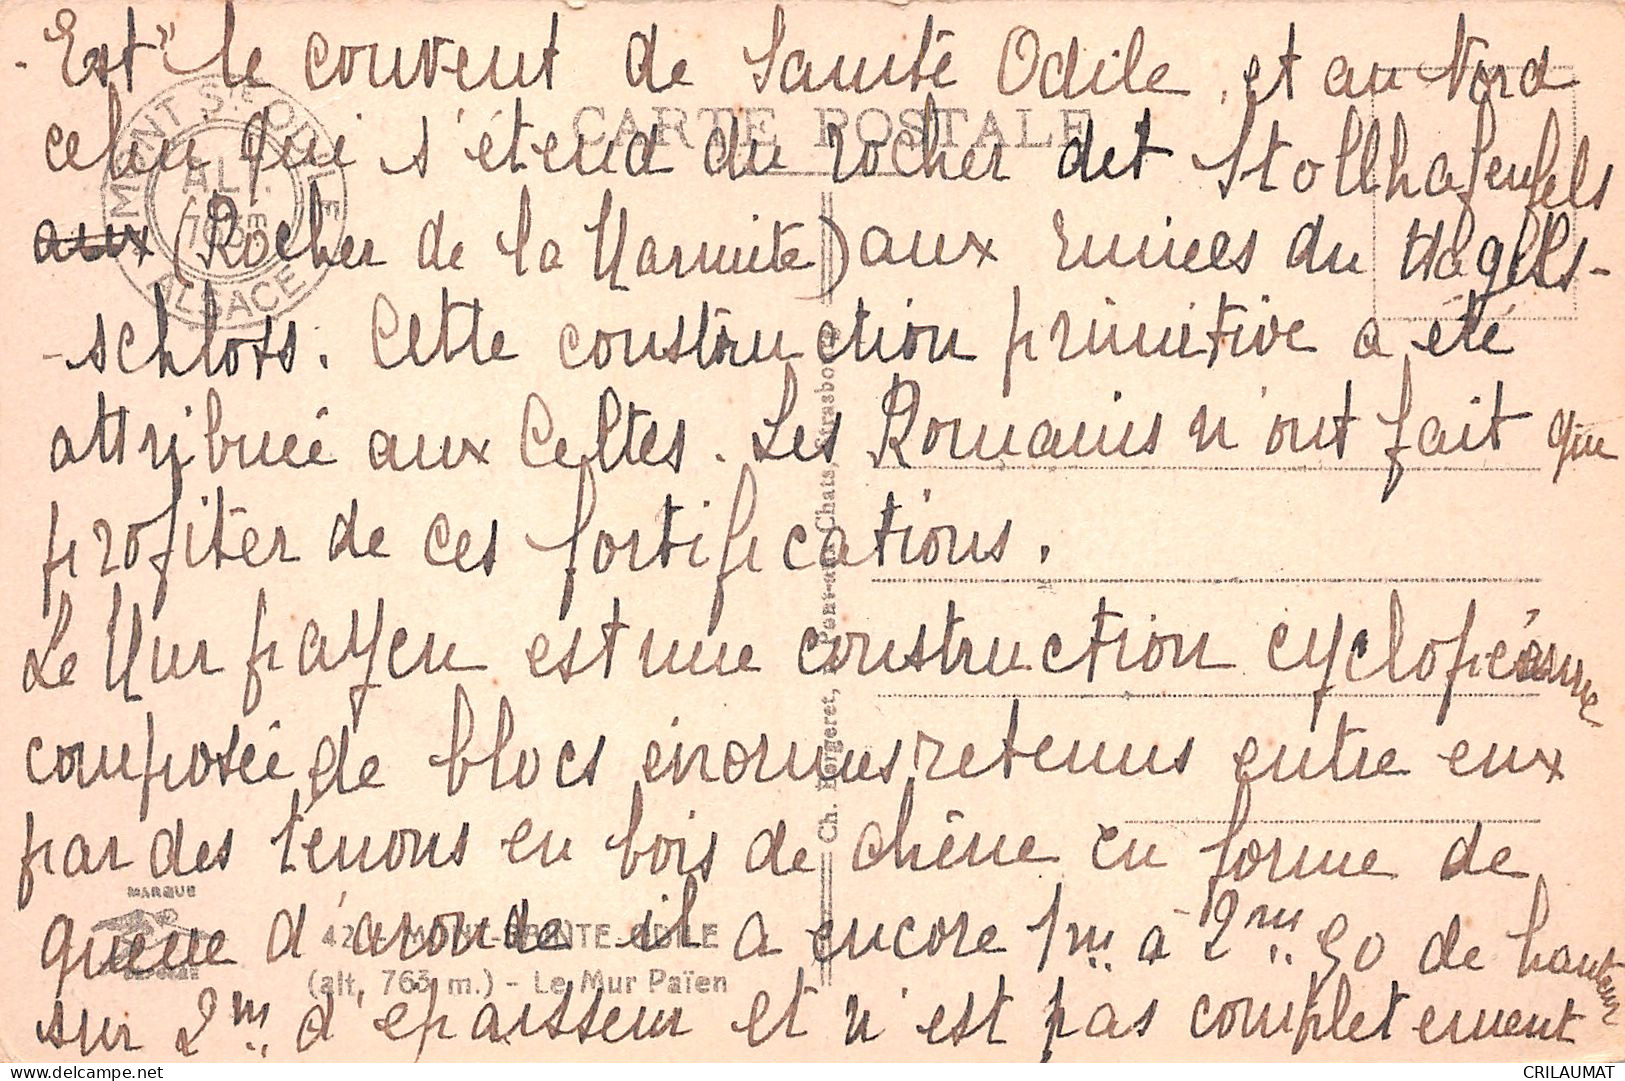 Est" le couvent de Sainte Odile, et au Nord
celui qui s'étend du rocher det Stollhafenfels
aux (Rocher de la Marmite) aux ruines du Hagels-
-schloss. Cette construction primitive a été
attribuée aux Celtes. Les Romains n'ont fait que
profiter de ces fortifications.
Le Mur payen est une construction cyclopéenne
composée de blocs énormes retenus entre eux
par des tenons en bois de chêne en forme de
queue d'aronde il a encore 1m à 2m,50 de hauteur
sur 2m d'épaisseur et n'est pas complètement
CARTE POSTALE
MONT Ste ODILE
ALT.
763
ALSACE
Ch. Bergeret, Pont-aux-Chats, Strasbourg
MARQUE
42 MONT-SAINTE-ODILE
(alt. 763 m.) - Le Mur Païen
delcampe.net
CRILAUMAT